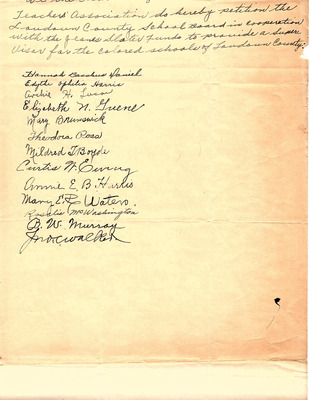 Teachers' Association do hereby petition the
Loudoun County School Board in cooperation
with the Jeanes Slater Funds to provide a Super
visor for the colored schools of Loudoun County:
Hannah Bacchus Daniel
Edythe Ophelia Harris
Archie H. Lucas
Elizabeth N. Greene
Mary Brunswick
Theodora Ross
Mildred T. Boyde
Curtis W. Ewing
Annie E. B. Harris
Mary E. R. Waters.
Rosalie McWashington
B. W. Murray
Jno. C. Walker